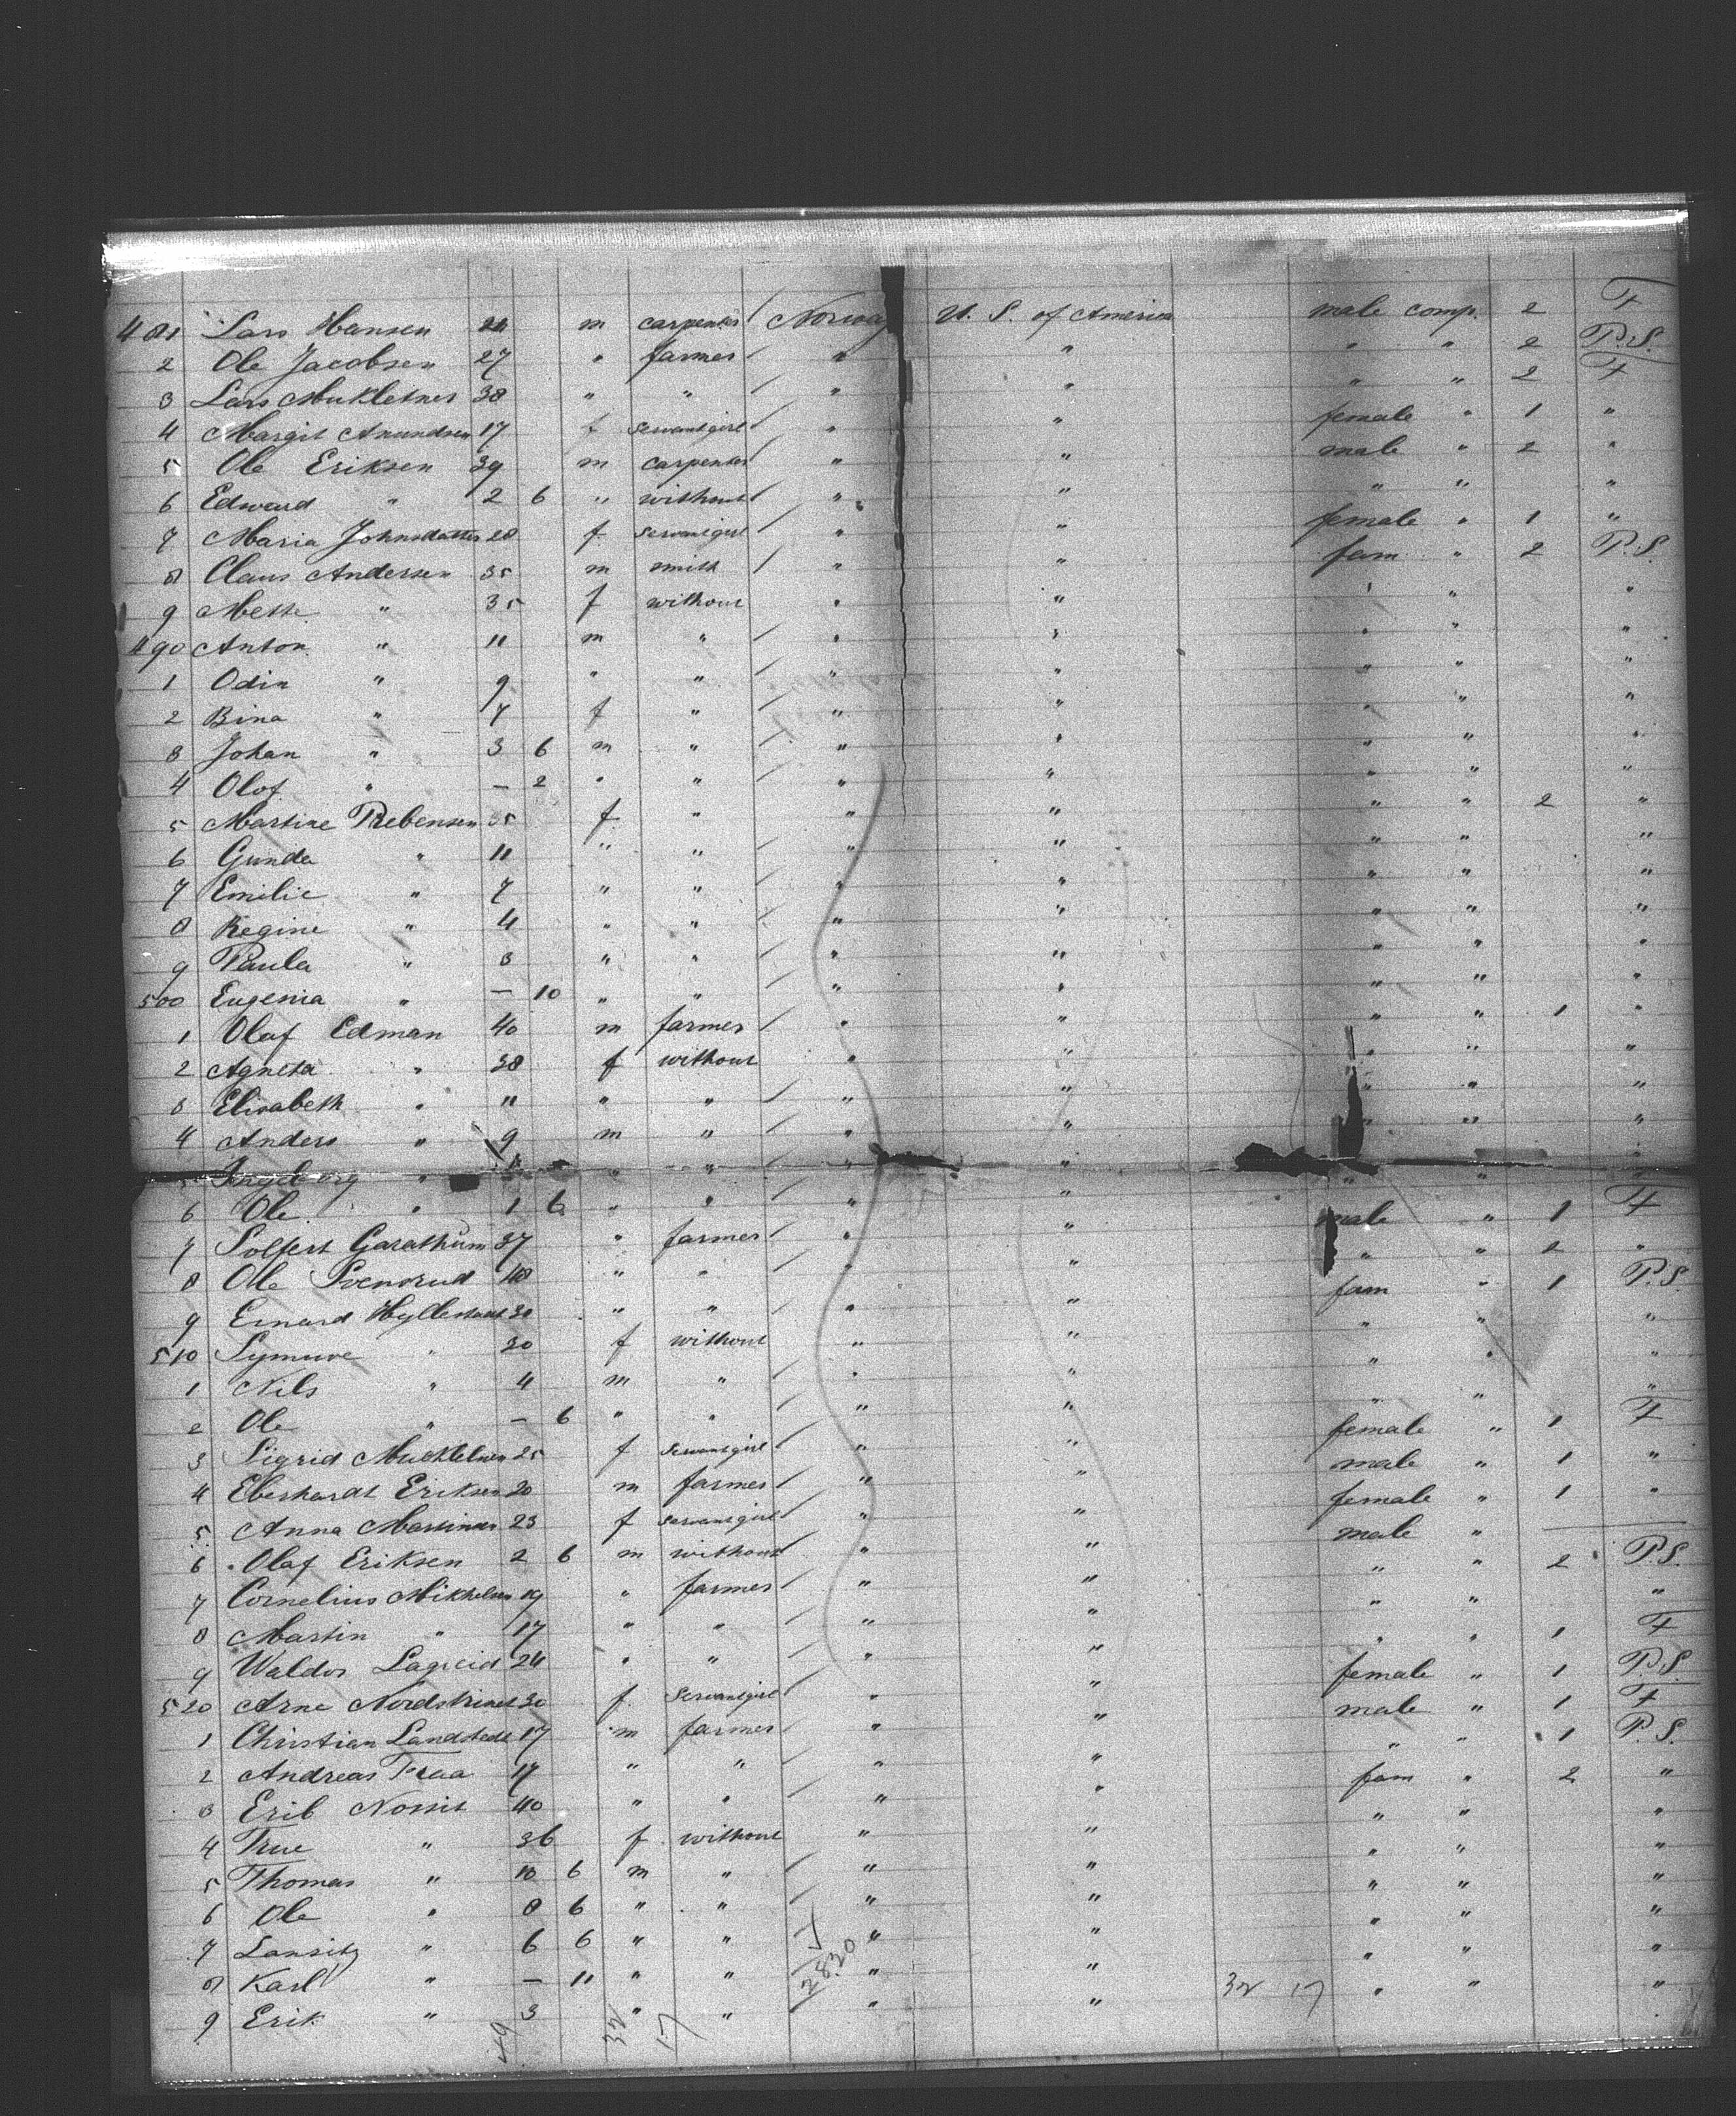 481 Lars Hansen 24 m carpenter / Norway U. S. of America male comp. 2 F
2 Ole Jacobsen 27 " farmer / " " " " 2 P.S.
3 Lars Mukletner 38 " " / " " " " 2 F
4 Margit Anundsen 17 f servantgirl / " " female " 1 "
5 Ole Eriksen 39 m carpenter " " male " 2 "
6 Edward " 2 6 " without / " " " " "
7 Maria Johnsdatter 28 f servantgirl / " " female " 1 "
8 Claus Andersen 35 m smith / " " fam " 2 P.S.
9 Mette " 35 f without " " " " "
490 Anton " 11 m " / " " " " "
1 Odin " 9 " " / " " " " "
2 Bina " 7 f " / " " " " "
3 Johan " 3 6 m " / " " " " "
4 Olof " – 2 " " / " " " " "
5 Martine Rebensen 35 f " " " " " 2 "
6 Gunda " 11 " " / " " " " "
7 Emilie " 7 " " / " " " " "
8 Regine " 4 " " / " " " " "
9 Paula " 3 " " / " " " " "
500 Eugenia " – 10 " " / " " " " "
1 Olaf Edman 40 m farmer / " " " " 1 "
2 Agneta " 38 f without " " " " "
3 Elisabeth " 11 " " / " " " " "
4 Anders " 9 m " / " " " " "
5 Ingeborg " " " / " " " " "
6 Ole " 1 6 " " / " "
7 Garathum 37 " farmer / " " male " 1 F
8 Ole 48 " " / " " " " 2 "
9 Hyllestad 30 " " / " " fam " 1 P.S.
510 " 30 f without " " " " "
1 Nils " 4 m " / " " " " "
2 Ole " – 6 " " / " " " " "
3 Sigrid 25 f servantgirl / " " female " 1 F
4 Eberhardt Eriksen 20 m farmer / " " male " 1 "
5 Anna Martinsen 23 f servantgirl / " " female " 1 "
6 Olaf Eriksen 2 6 m without / " " male "
7 Cornelius Mikkelsen 19 " farmer / " " " " 2 P.S.
8 Martin " 17 " " / " " " " "
9 Waldor Lagreid 24 " " / " " " " 1 F
520 Arne 30 f servantgirl / " " female " 1 P.S.
1 Christian Landstede 17 m farmer / " " male " 1 F
2 Andreas 17 " " / " " " " 1 P.S.
3 Erik 40 " " / " " fam " 2 "
4 True " 36 f without " " " " "
5 Thomas " 10 6 m " / " " " " "
6 Ole " 8 6 " " / " " " " "
7 " 6 6 " " / " " " " "
8 Karl " – 11 " " / " " " " "
9 Erik " 3 " " / " " " " "
49 32 17 2830 32 17